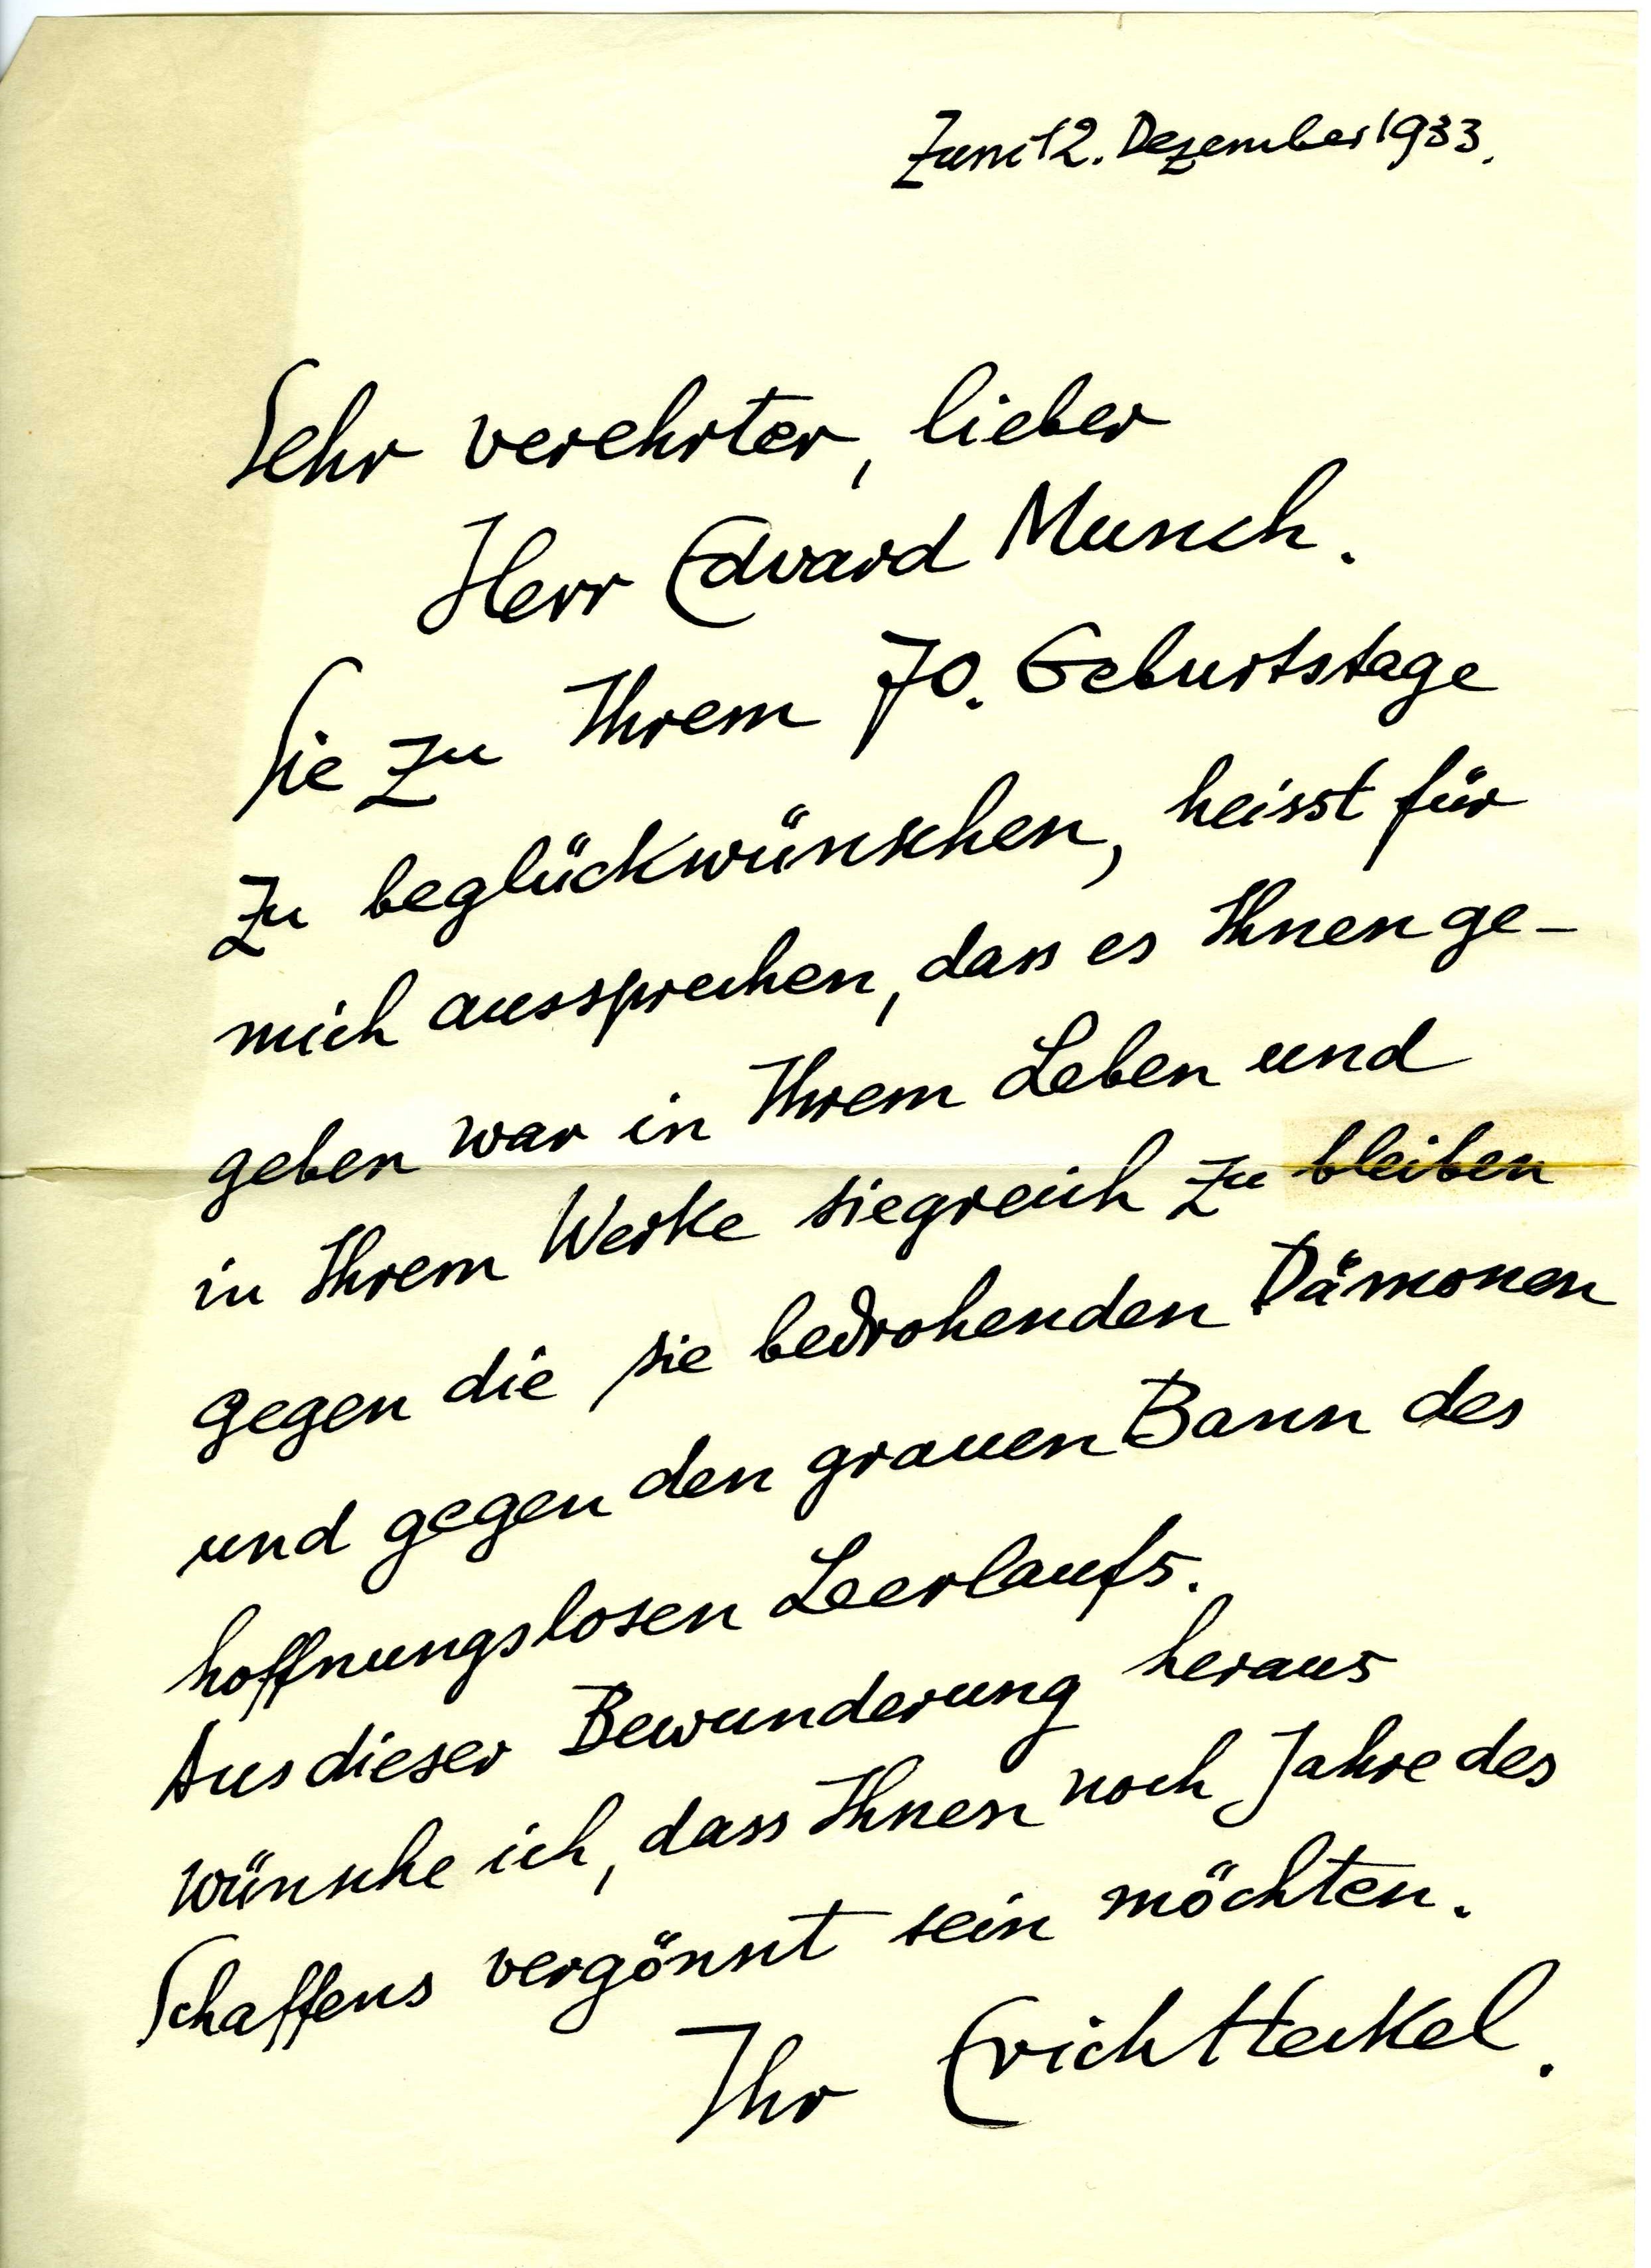 Zum 12. Dezember 1933.
Sehr verehrter, lieber
Herr Edvard Munch.
Sie zu Ihrem 70. Geburtstage
zu beglückwünschen, heisst für
mich aussprechen, dass es Ihnen ge-
geben war in Ihrem Leben und
in Ihrem Werke siegreich zu bleiben
gegen die sie bedrohenden Dämonen
und gegen den grauen Bann des
hoffnungslosen Leerlaufs.
Aus dieser Bewunderung heraus
wünsche ich, dass Ihnen noch Jahre des
Schaffens vergönnt sein möchten.
Ihr Erich Heckel.